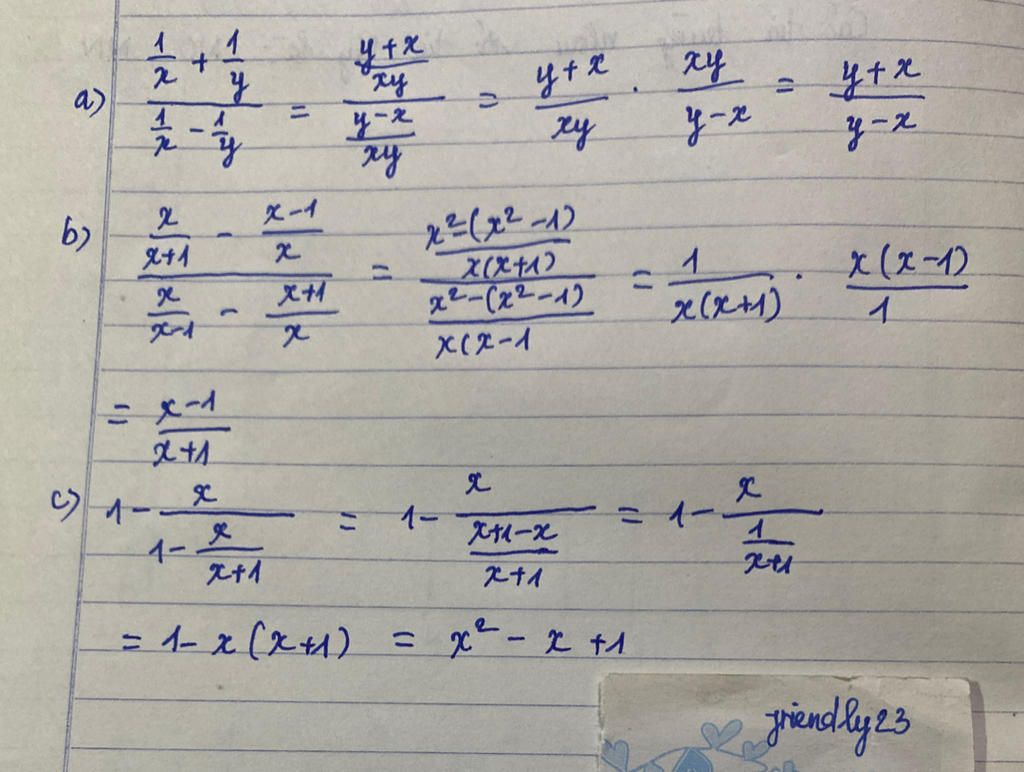 a) \frac{\frac{1}{x} + \frac{1}{y}}{\frac{1}{x} - \frac{1}{y}} = \frac{\frac{y+x}{xy}}{\frac{y-x}{xy}} = \frac{y+x}{xy} \cdot \frac{xy}{y-x} = \frac{y+x}{y-x}
b) \frac{\frac{x}{x+1} - \frac{x-1}{x}}{\frac{x}{x-1} - \frac{x+1}{x}} = \frac{\frac{x^2-(x^2-1)}{x(x+1)}}{\frac{x^2-(x^2-1)}{x(x-1}} = \frac{1}{x(x+1)} \cdot \frac{x(x-1)}{1}
= \frac{x-1}{x+1}
c) 1 - \frac{x}{1 - \frac{x}{x+1}} = 1 - \frac{x}{\frac{x+1-x}{x+1}} = 1 - \frac{x}{\frac{1}{x+1}}
= 1 - x(x+1) = x^2 - x + 1
friendly23